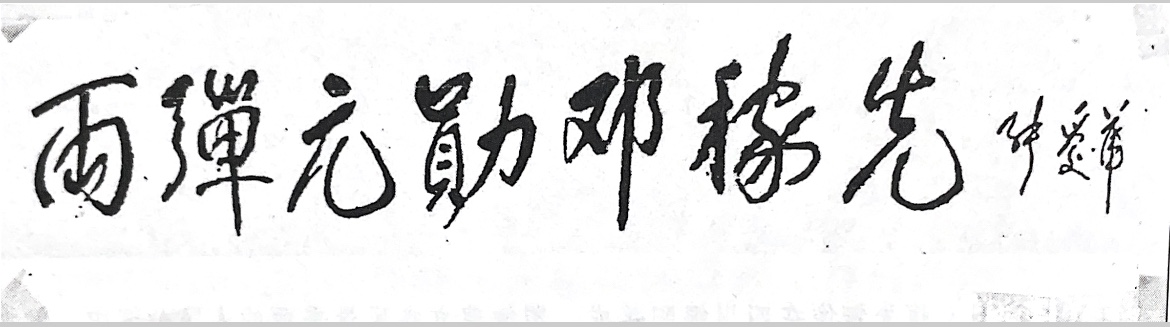 两彈元勛邓稼先 张爱萍